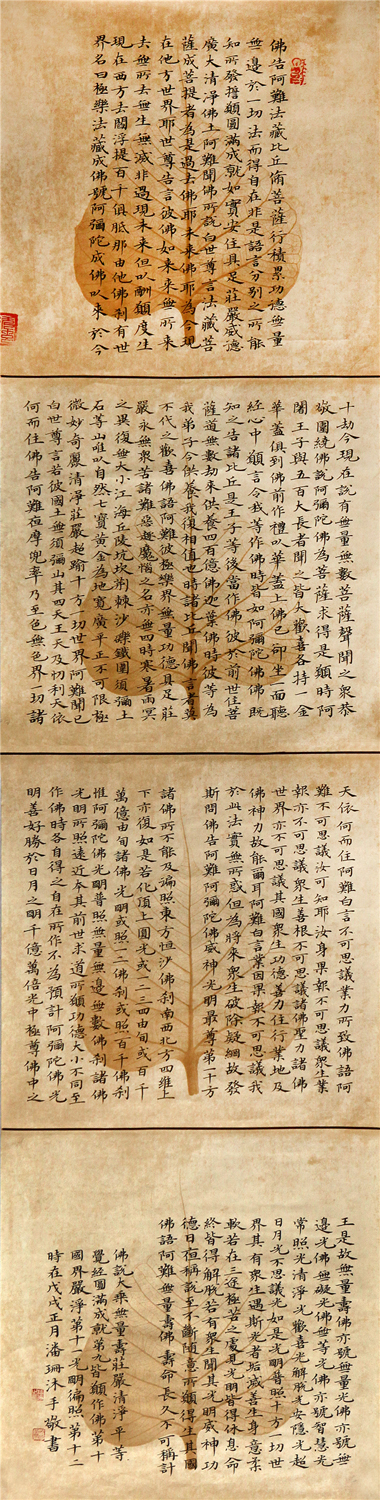 佛告阿難法藏比丘修菩薩行積累功德無量
無邊於一切法而得自在非是語言分別之所能
知所發誓願圓滿成就如實安住具足莊嚴威德
廣大清淨佛土阿難聞佛所說白世尊言法藏菩
薩成菩提者為是過去佛耶未來佛耶為今現
在他方世界耶世尊告言彼佛如來來無所來
去無所去無生無滅非過現未來但以酬願度生
現在西方去閻浮提百千俱胝那由他佛剎有世
界名曰極樂法藏成佛號阿彌陀成佛以來於今
十劫今現在說有無量無數菩薩聲聞之眾恭
敬圍繞佛說阿彌陀佛為菩薩求得是願時阿
闍王子與五百大長者聞之皆大歡喜各持一金
華蓋俱到佛前作禮以華蓋上佛已卻坐一面聽
經心中願言令我等作佛時皆如阿彌陀佛佛既
知之告諸比丘是王子等後當作佛彼於前世住菩
薩道無數劫來供養四百億佛迦葉佛時彼等為
我弟子今供養我復相值也時諸比丘聞佛言者莫
不代之歡喜佛語阿難彼極樂界無量功德具足莊
嚴永無眾苦諸難惡趣魔惱之名亦無四時寒暑雨冥
之異復無大小江海丘陵坑坎荊棘沙礫鐵圍須彌土
石等山唯以自然七寶黃金為地寬廣平正不可限極
微妙奇麗清淨莊嚴超踰十方一切世界阿難聞已
白世尊言若彼國土無須彌山其四天王天及忉利天依
何而住佛告阿難夜摩兜率乃至色無色界一切諸
天依何而住阿難白言不可思議業力所致佛語阿
難不可思議汝可知耶汝身果報不可思議眾生業
報亦不可思議眾生善根不可思議諸佛聖力諸佛
世界亦不可思議其國眾生功德善力住行業地及
佛神力故能爾耳阿難白言業因果報不可思議我
於此法實無所惑但為將來眾生破除疑網故發
斯問佛告阿難阿彌陀佛威神光明最尊第一十方
諸佛所不能及遍照東方恒沙佛剎南西北方四維上
下亦復如是若化頂上圓光或一二三四由旬或百千
萬億由旬諸佛光明或照一二佛剎或照百千佛剎
惟阿彌陀佛光明普照無量無邊無數佛剎諸佛
光明所照遠近本其前世求道所願功德大小不同至
作佛時各自得之自在所作不為預計阿彌陀佛光
明善好勝於日月之明千億萬倍光中極尊佛中之
王是故無量壽佛亦號無量光佛亦號無
邊光佛無礙光佛無等光佛亦號智慧光
常照光清淨光歡喜光解脫光安隱光超
日月光不思議光如是光明普照十方一切世
界其有眾生遇斯光者垢滅善生身意柔
軟若在三途極苦之處見此光明皆得休息命
終皆得解脫若有眾生聞其光明威神功
德日夜稱說至心不斷隨意所願得生其國
佛語阿難無量壽佛壽命長久不可稱計
佛說大乘無量壽莊嚴清淨平等
覺經圓滿成就第九皆願作佛第十
國界嚴淨第十一光明徧照第十二
時在戊戌正月潘珊沐手敬書